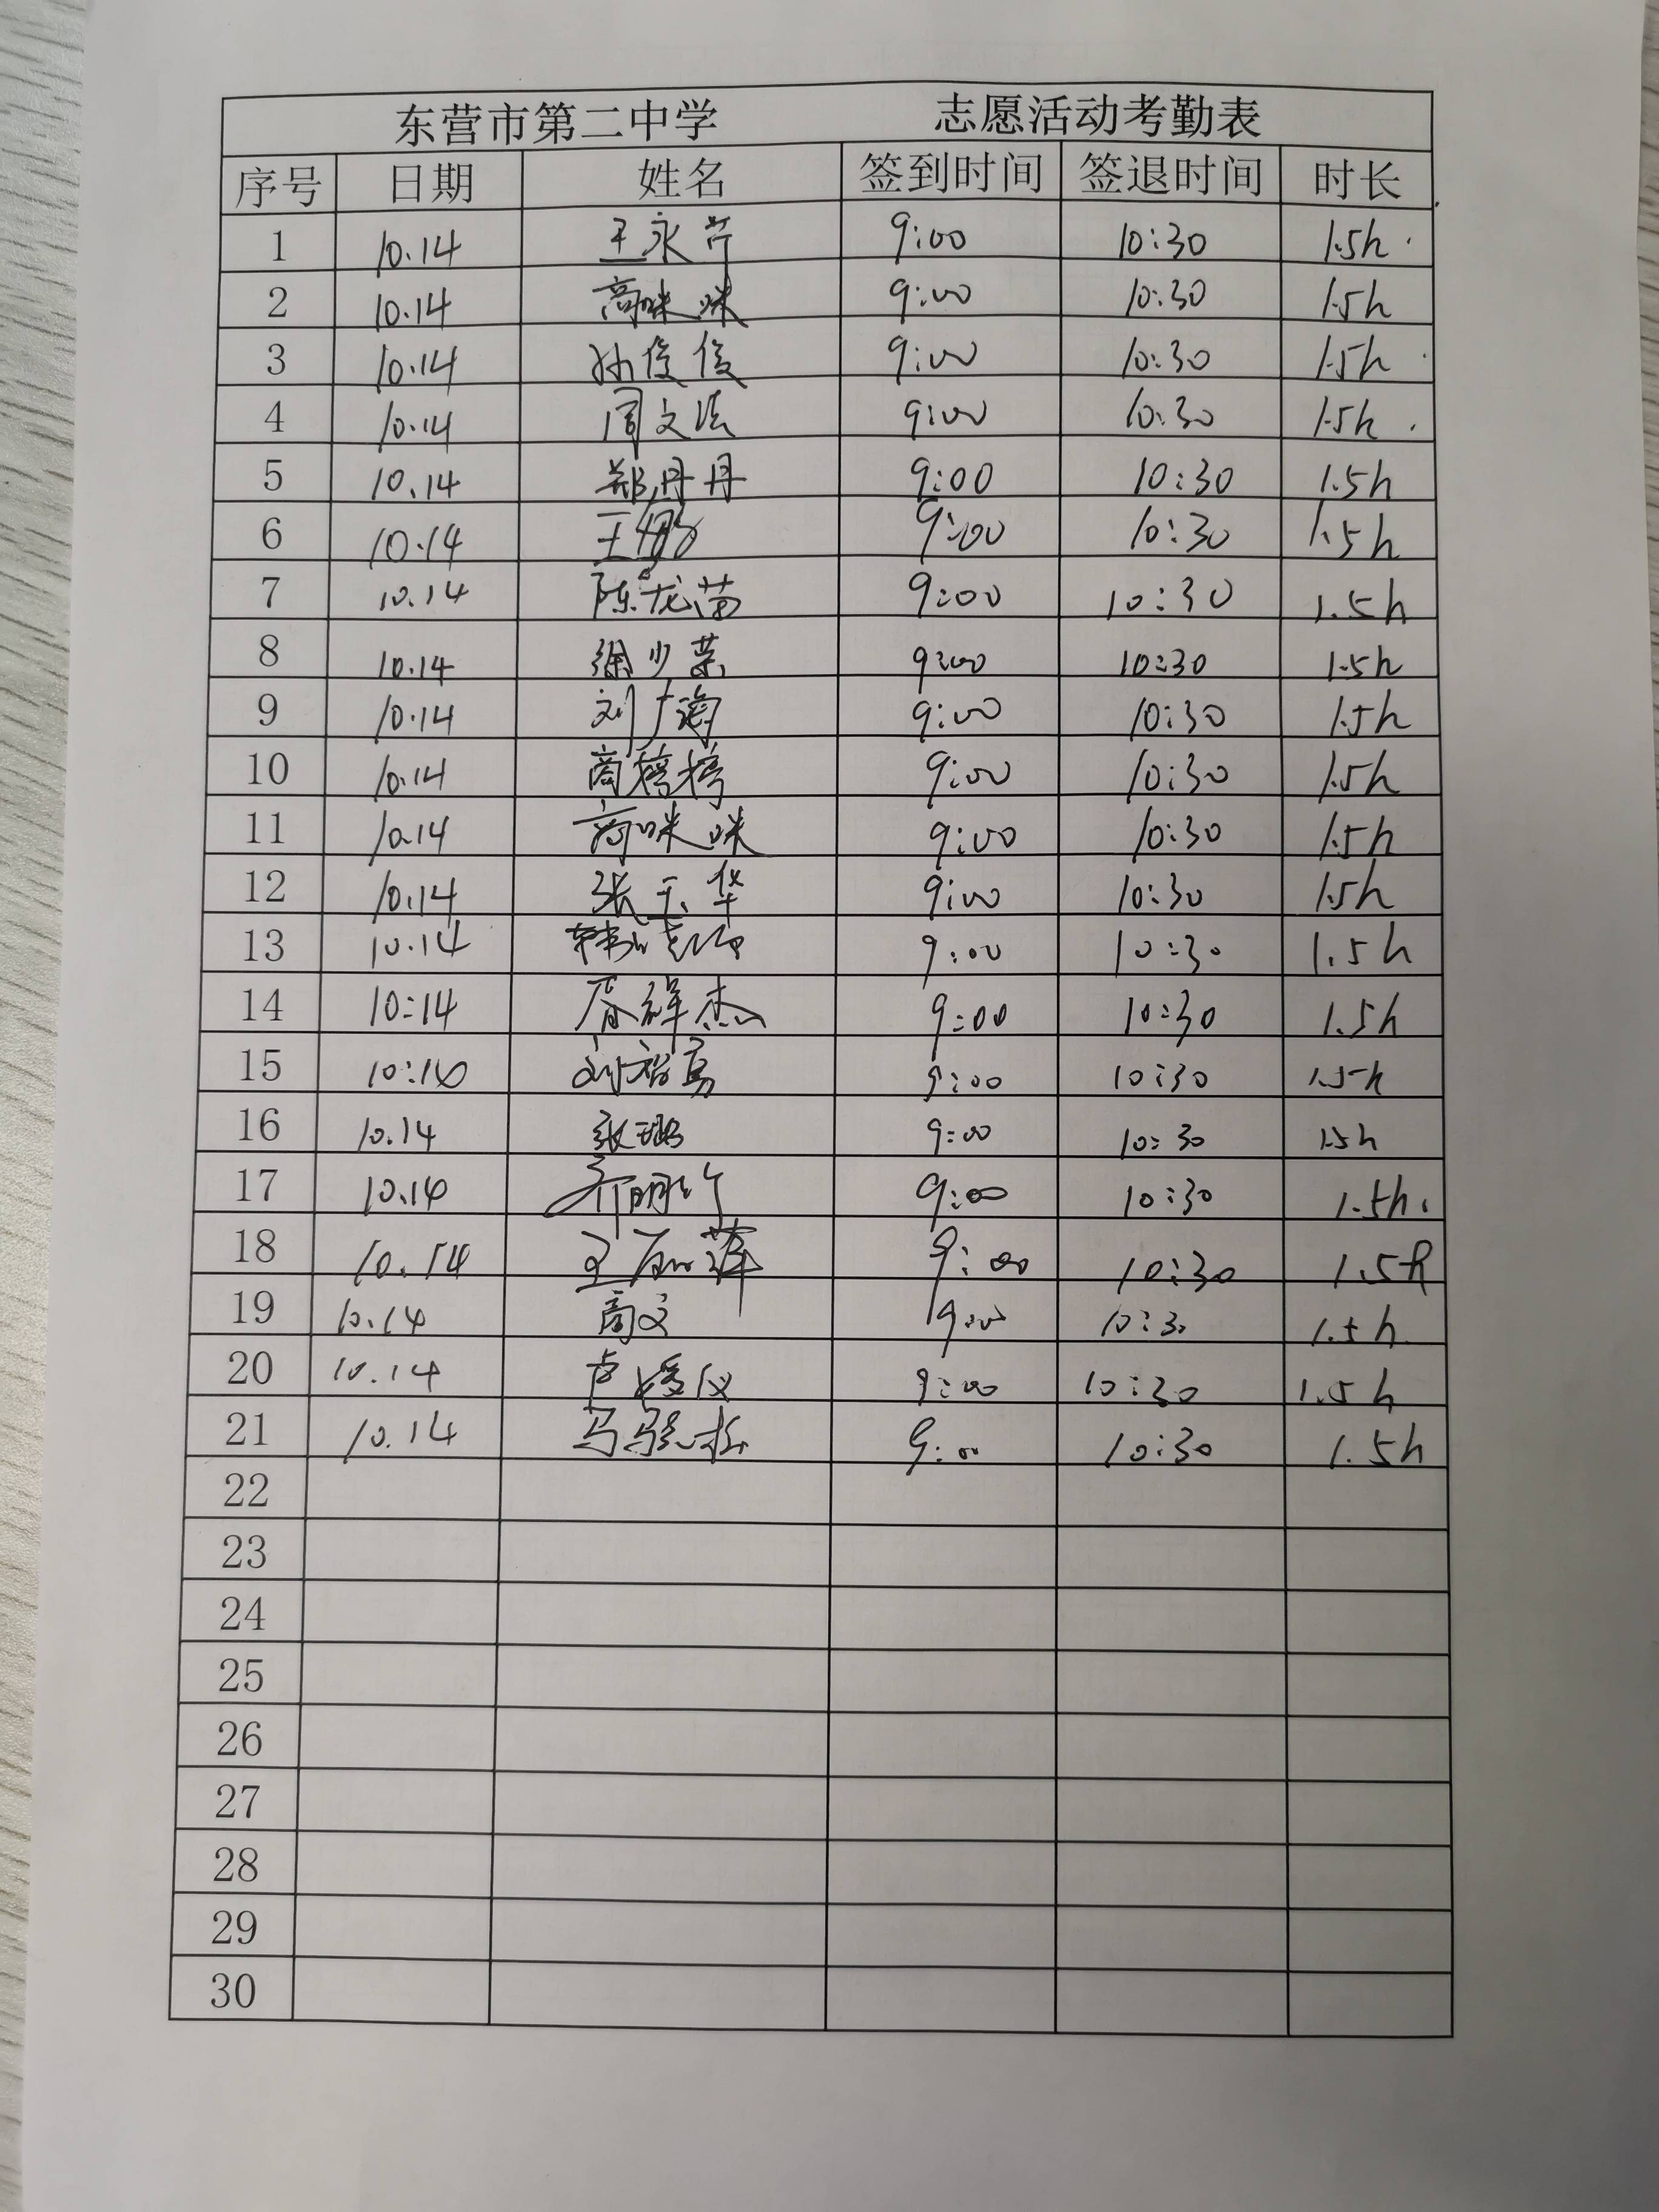 东营市第二中学 志愿活动考勤表
序号 日期 姓名 签到时间 签退时间 时长
1 10.14 王永芹 9:00 10:30 1.5h
2 10.14 高咪咪 9:00 10:30 1.5h
3 10.14 孙俊俊 9:00 10:30 1.5h
4 10.14 周文法 9:00 10:30 1.5h
5 10.14 郑丹丹 9:00 10:30 1.5h
6 10.14 王娜 9:00 10:30 1.5h
7 10.14 陈龙苗 9:00 10:30 1.5h
8 10.14 徐少荣 9:00 10:30 1.5h
9 10.14 刘广海 9:00 10:30 1.5h
10 10.14 商榜榜 9:00 10:30 1.5h
11 10.14 高咪咪 9:00 10:30 1.5h
12 10.14 张玉华 9:00 10:30 1.5h
13 10.14 9:00 10:30 1.5h
14 10:14 9:00 10:30 1.5h
15 10:14 9:00 10:30 1.5h
16 10.14 张璐 9:00 10:30 1.5h
17 10.14 9:00 10:30 1.5h
18 10.14 9:00 10:30 1.5h
19 10.14 商文 9:00 10:30 1.5h
20 10.14 卢媛仪 9:00 10:30 1.5h
21 10.14 9:00 10:30 1.5h
22
23
24
25
26
27
28
29
30